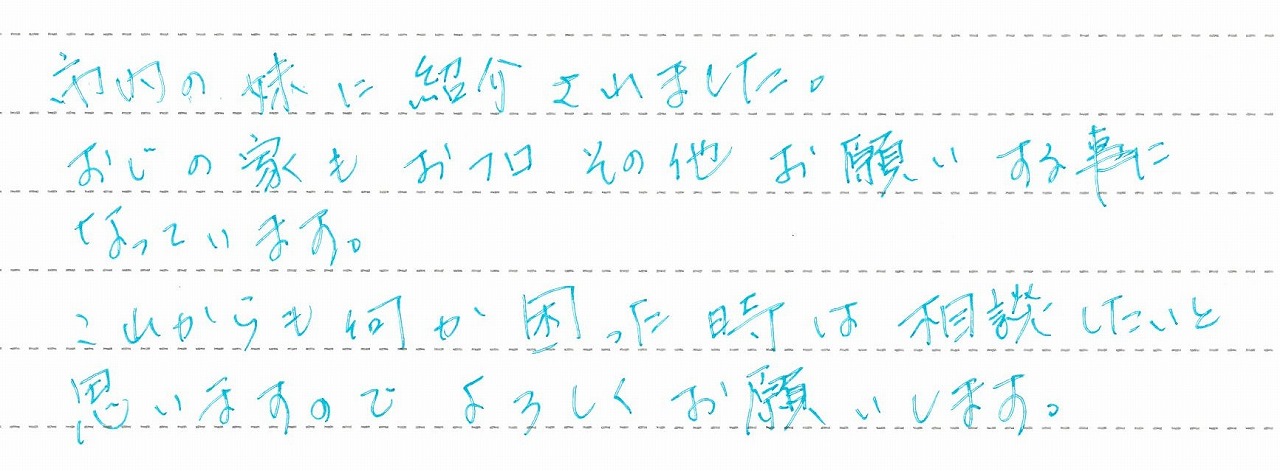 市内の妹に紹介されました。
おじの家もおフロその他お願いする事に
なっています。
これからも何か困った時は相談したいと
思いますのでよろしくお願いします。